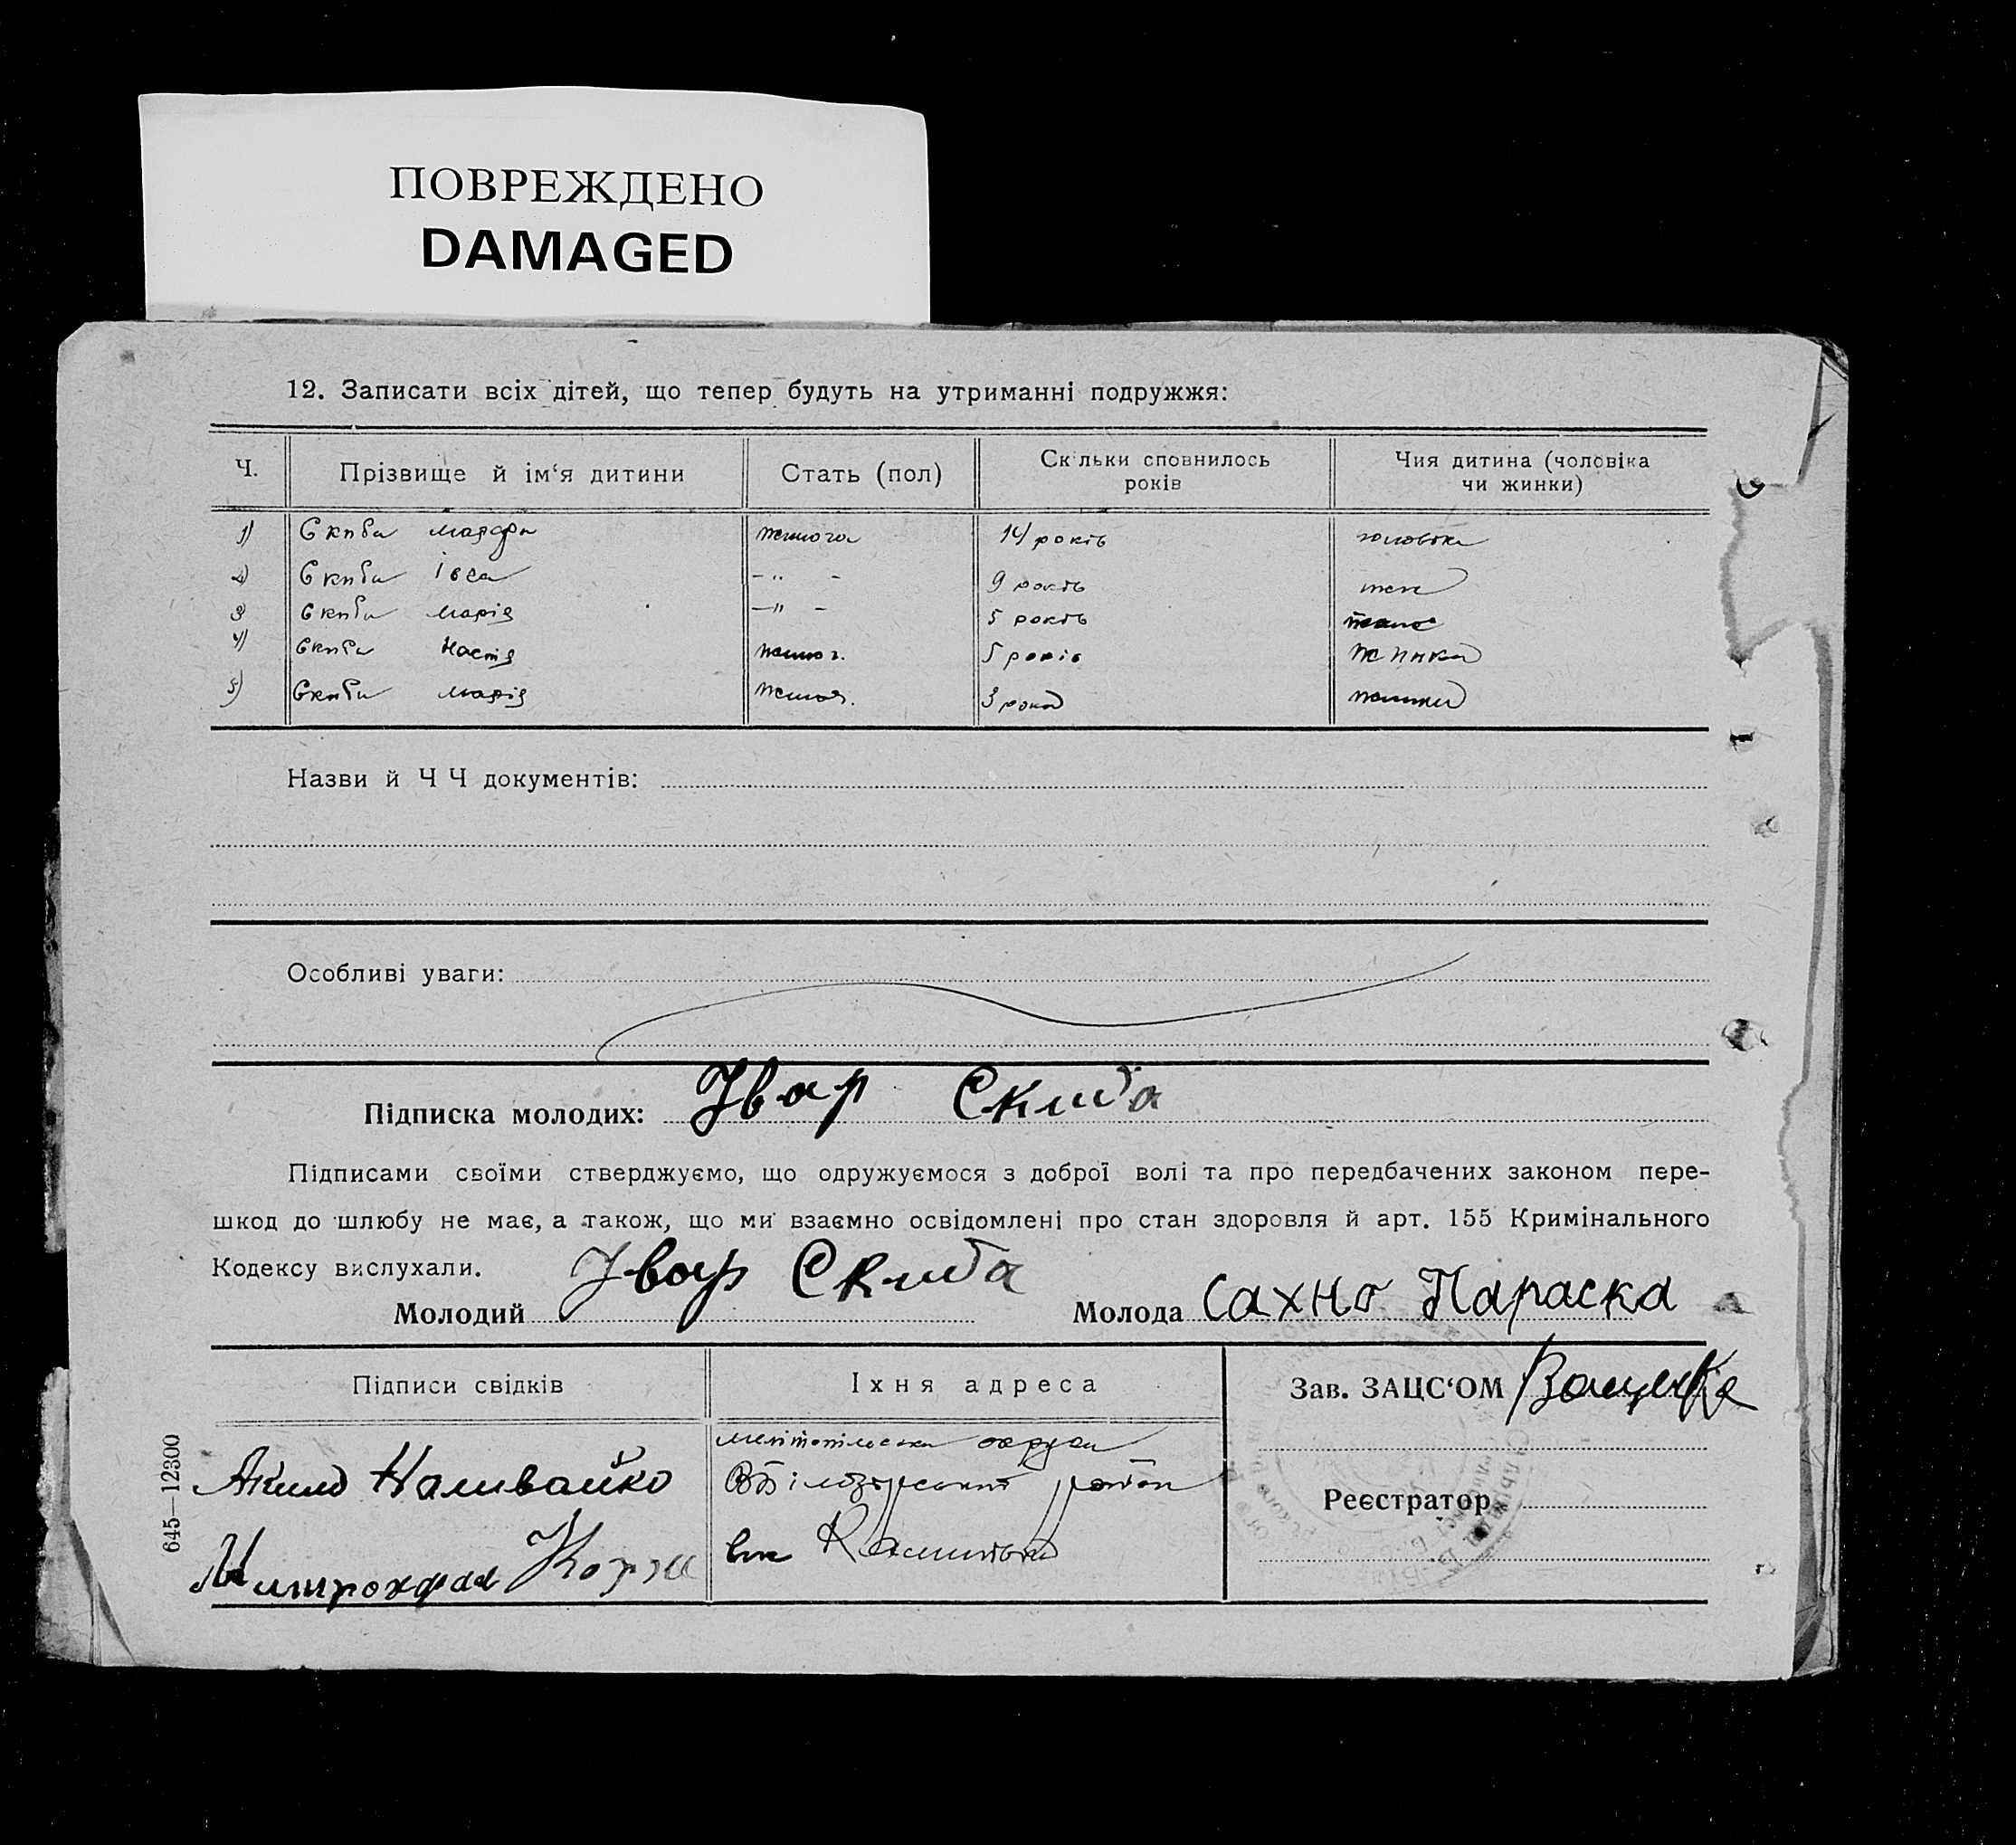 ПОВРЕЖДЕНО
DAMAGED
12. Записати всіх дітей, що тепер будуть на утриманні подружжя:
Ч. Прізвище й ім‘я дитини Стать (пол) Скільки сповнилось років Чия дитина (чоловіка чи жинки)
1) Скиби 14 років чоловіка
2) Скиби -"- 9 років
3 Скиби Марія -"- 5 років
4) Скиби Настя 5 років жинки
5) Скиби Марія 3 роки жинки
Назви й Ч Ч документів:
Особливі уваги:
Підписка молодих: Скиба
Підписами своїми стверджуємо, що одружуємося з доброї волі та про передбачених законом пере-
шкод до шлюбу не має, а також, що ми взаємно освідомлені про стан здоровля й арт. 155 Кримінального
Кодексу вислухали.
Молодий Скиба Молода Сахно Параска
Підписи свідків Їхня адреса Зав. ЗАЦС‘ОМ
округи
Наливайко район
Реєстратор
645—12300